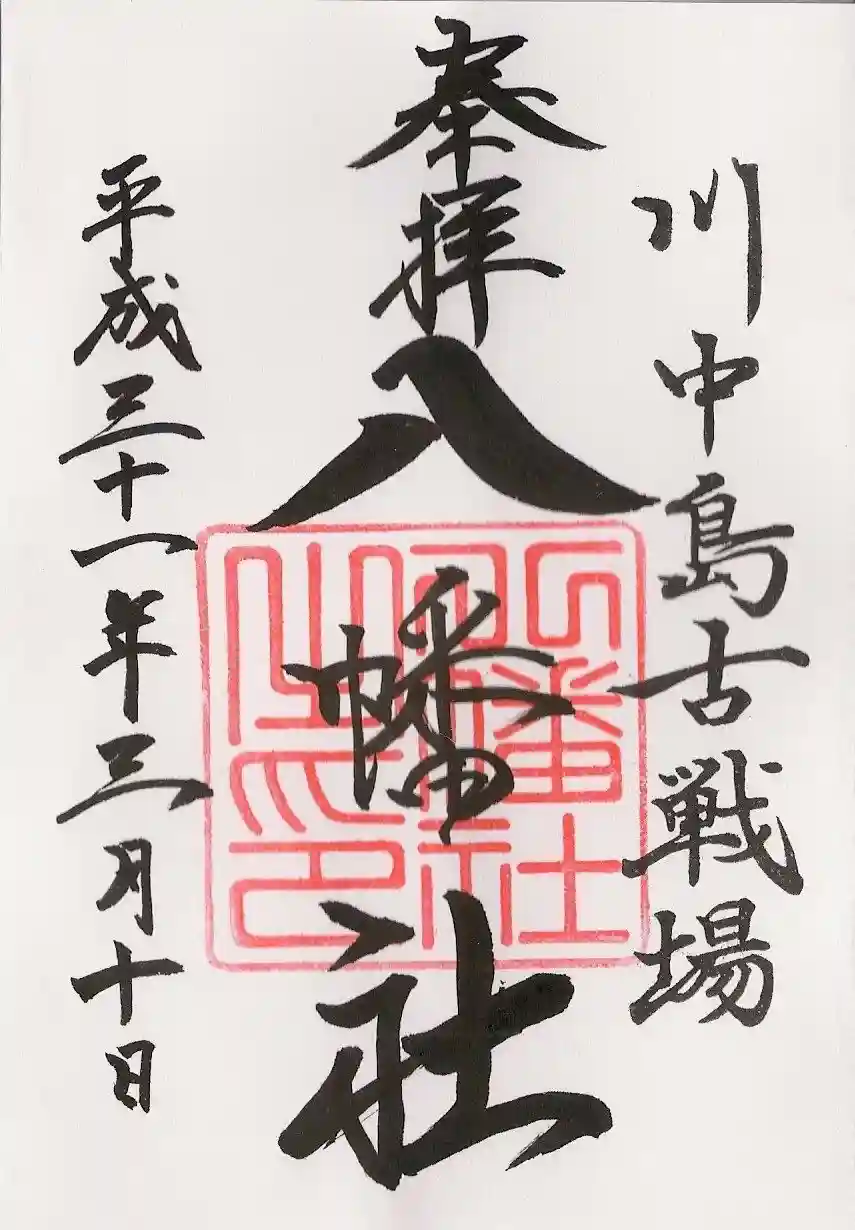 川中島古戦場
奉拝
八幡社
平成三十一年三月十日
八幡社之印